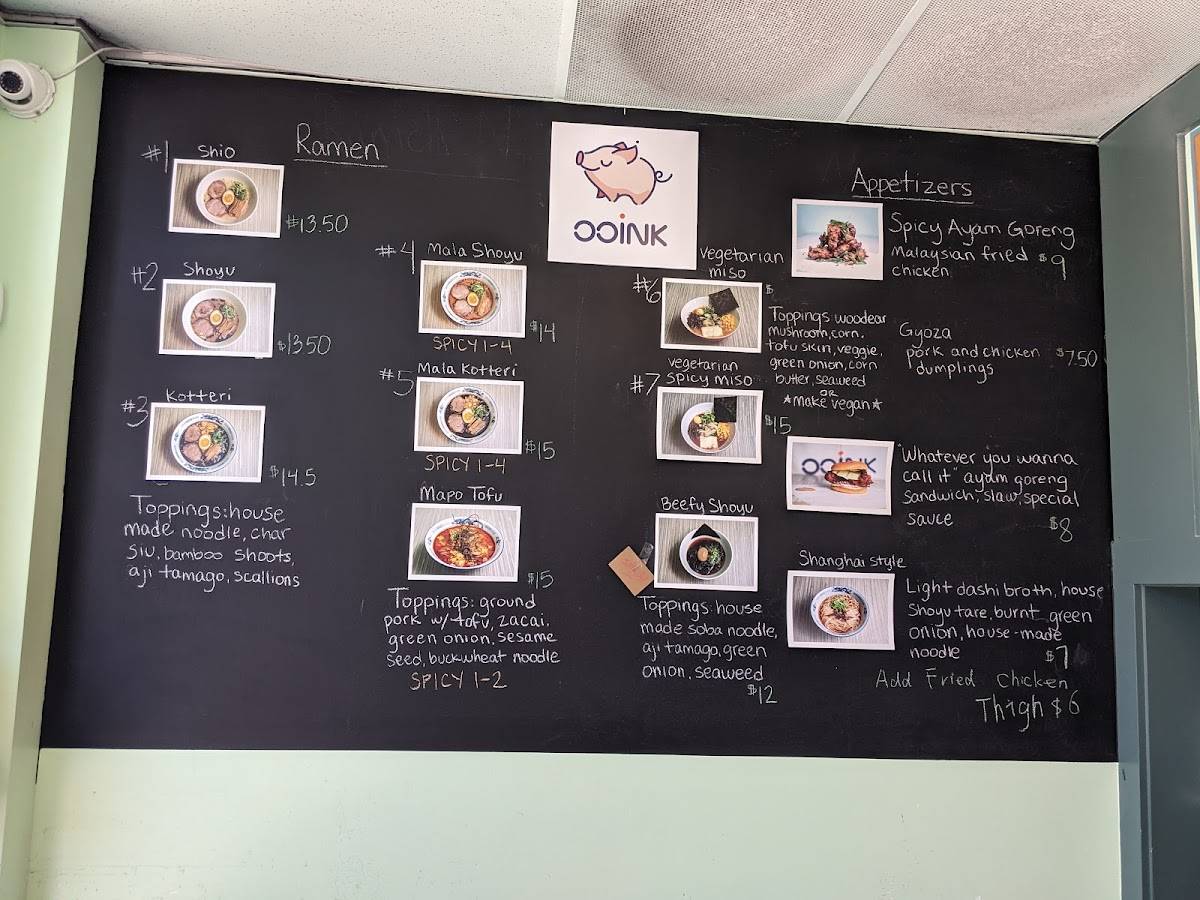 Ramen
#1 Shio
$13.50
#2 Shoyu
$1350
#3 Kotteri
$14.5
Toppings: house
made noodle, char
siu, bamboo shoots,
aji tamago, scallions
#4 Mala Shoyu
$14
SPICY 1-4
#5 Mala Kotteri
$15
SPICY 1-4
Mapo Tofu
$15
Toppings: ground
pork w/ tofu, zacai,
green onion, sesame
seed, buckwheat noodle
SPICY 1-2
OOINK
#6 vegetarian
miso
$
Toppings: woodear
mushroom, corn,
tofu skin, veggie,
green onion, corn
butter, seaweed
OR
*make vegan*
#7 vegetarian
spicy miso
$15
Beefy Shoyu
Toppings: house
made soba noodle,
aji tamago, green
onion, seaweed
$12
Appetizers
Spicy Ayam Goreng
Malaysian fried $9
chicken
Gyoza
pork and chicken $7.50
dumplings
OOINK
"Whatever you wanna
call it" ayam goreng
sandwich, slaw, special
sauce $8
Shanghai style
Light dashi broth, house
Shoyu tare, burnt green
onion, house-made
noodle $7
Add Fried Chicken
Thigh $6